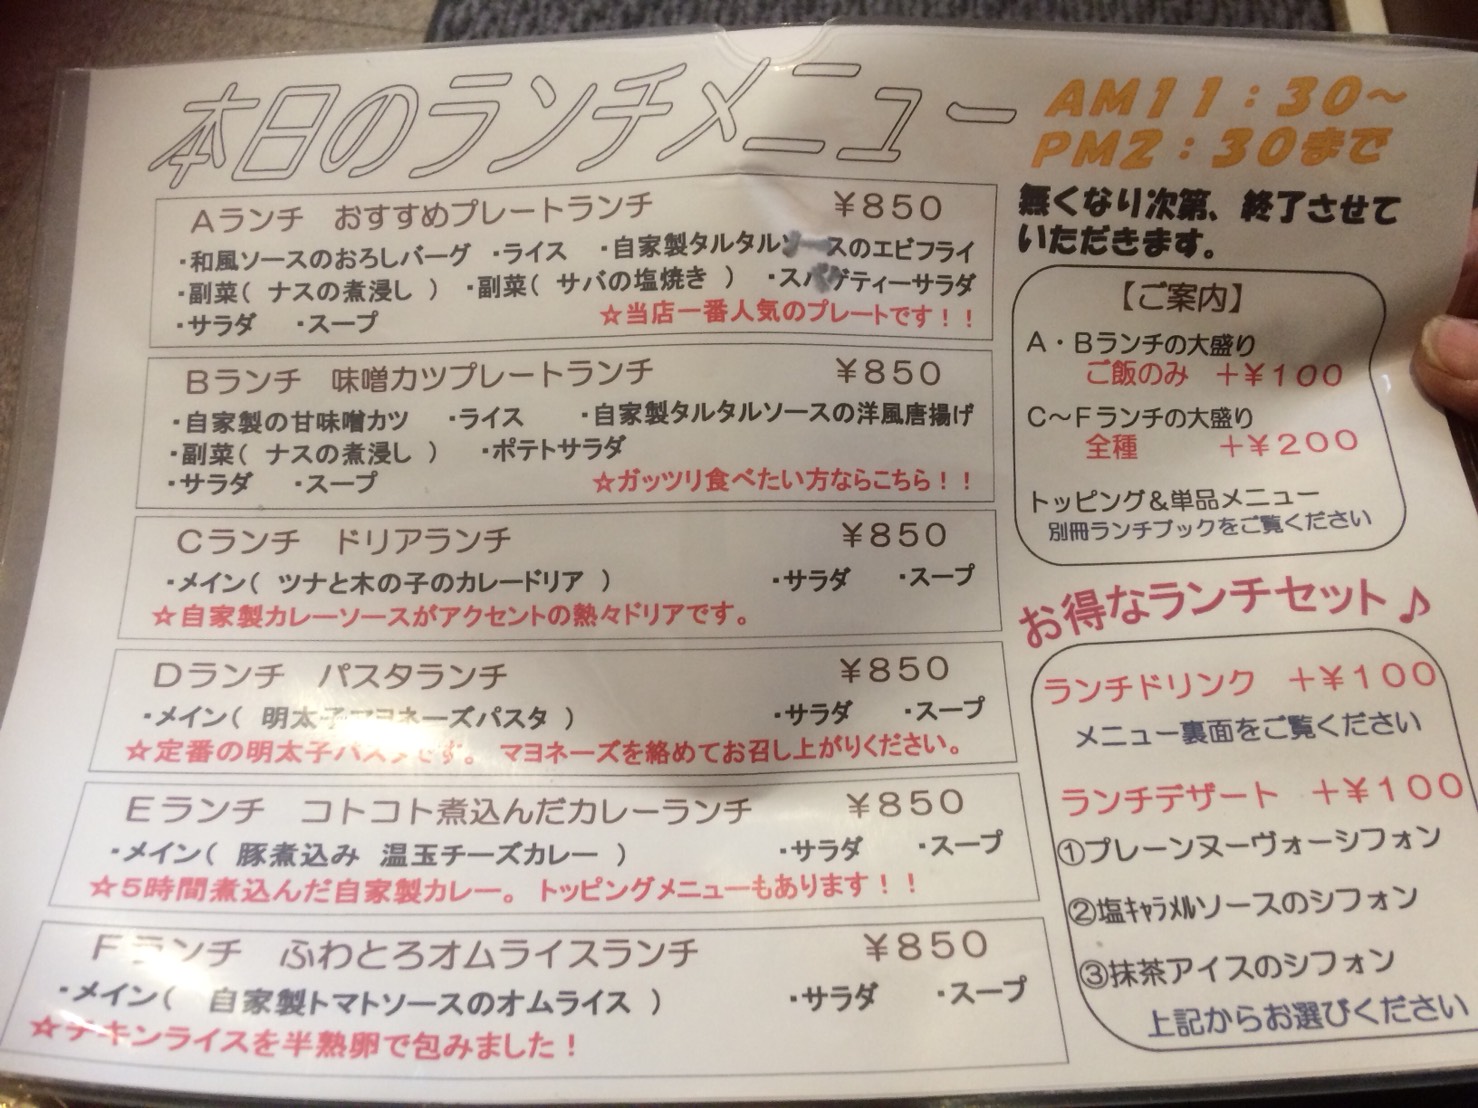 本日のランチメニュー
AM11:30～
PM2:30まで
無くなり次第、終了させて
いただきます。
Aランチ　おすすめプレートランチ　¥850
・和風ソースのおろしバーグ　・ライス　・自家製タルタルソースのエビフライ
・副菜(ナスの煮浸し)　・副菜(サバの塩焼き)　・スパゲティーサラダ
・サラダ　・スープ　☆当店一番人気のプレートです！！
Bランチ　味噌カツプレートランチ　¥850
・自家製の甘味噌カツ　・ライス　・自家製タルタルソースの洋風唐揚げ
・副菜(ナスの煮浸し)　・ポテトサラダ
・サラダ　・スープ　☆ガッツリ食べたい方ならこちら！！
Cランチ　ドリアランチ　¥850
・メイン(ツナと木の子のカレードリア)　・サラダ　・スープ
☆自家製カレーソースがアクセントの熱々ドリアです。
Dランチ　パスタランチ　¥850
・メイン(明太子マヨネーズパスタ)　・サラダ　・スープ
☆定番の明太子パスタです。マヨネーズを絡めてお召し上がりください。
Eランチ　コトコト煮込んだカレーランチ　¥850
・メイン(豚煮込み 温玉チーズカレー)　・サラダ　・スープ
☆5時間煮込んだ自家製カレー。トッピングメニューもあります！！
Fランチ　ふわとろオムライスランチ　¥850
・メイン(自家製トマトソースのオムライス)　・サラダ　・スープ
☆チキンライスを半熟卵で包みました！
【ご案内】
A・Bランチの大盛り
ご飯のみ　+¥100
C～Fランチの大盛り
全種　+¥200
トッピング＆単品メニュー
別冊ランチブックをご覧ください
お得なランチセット♪
ランチドリンク　+¥100
メニュー裏面をご覧ください
ランチデザート　+¥100
①プレーンヌーヴォーシフォン
②塩ｷｬﾗﾒﾙソースのシフォン
③抹茶アイスのシフォン
上記からお選びください